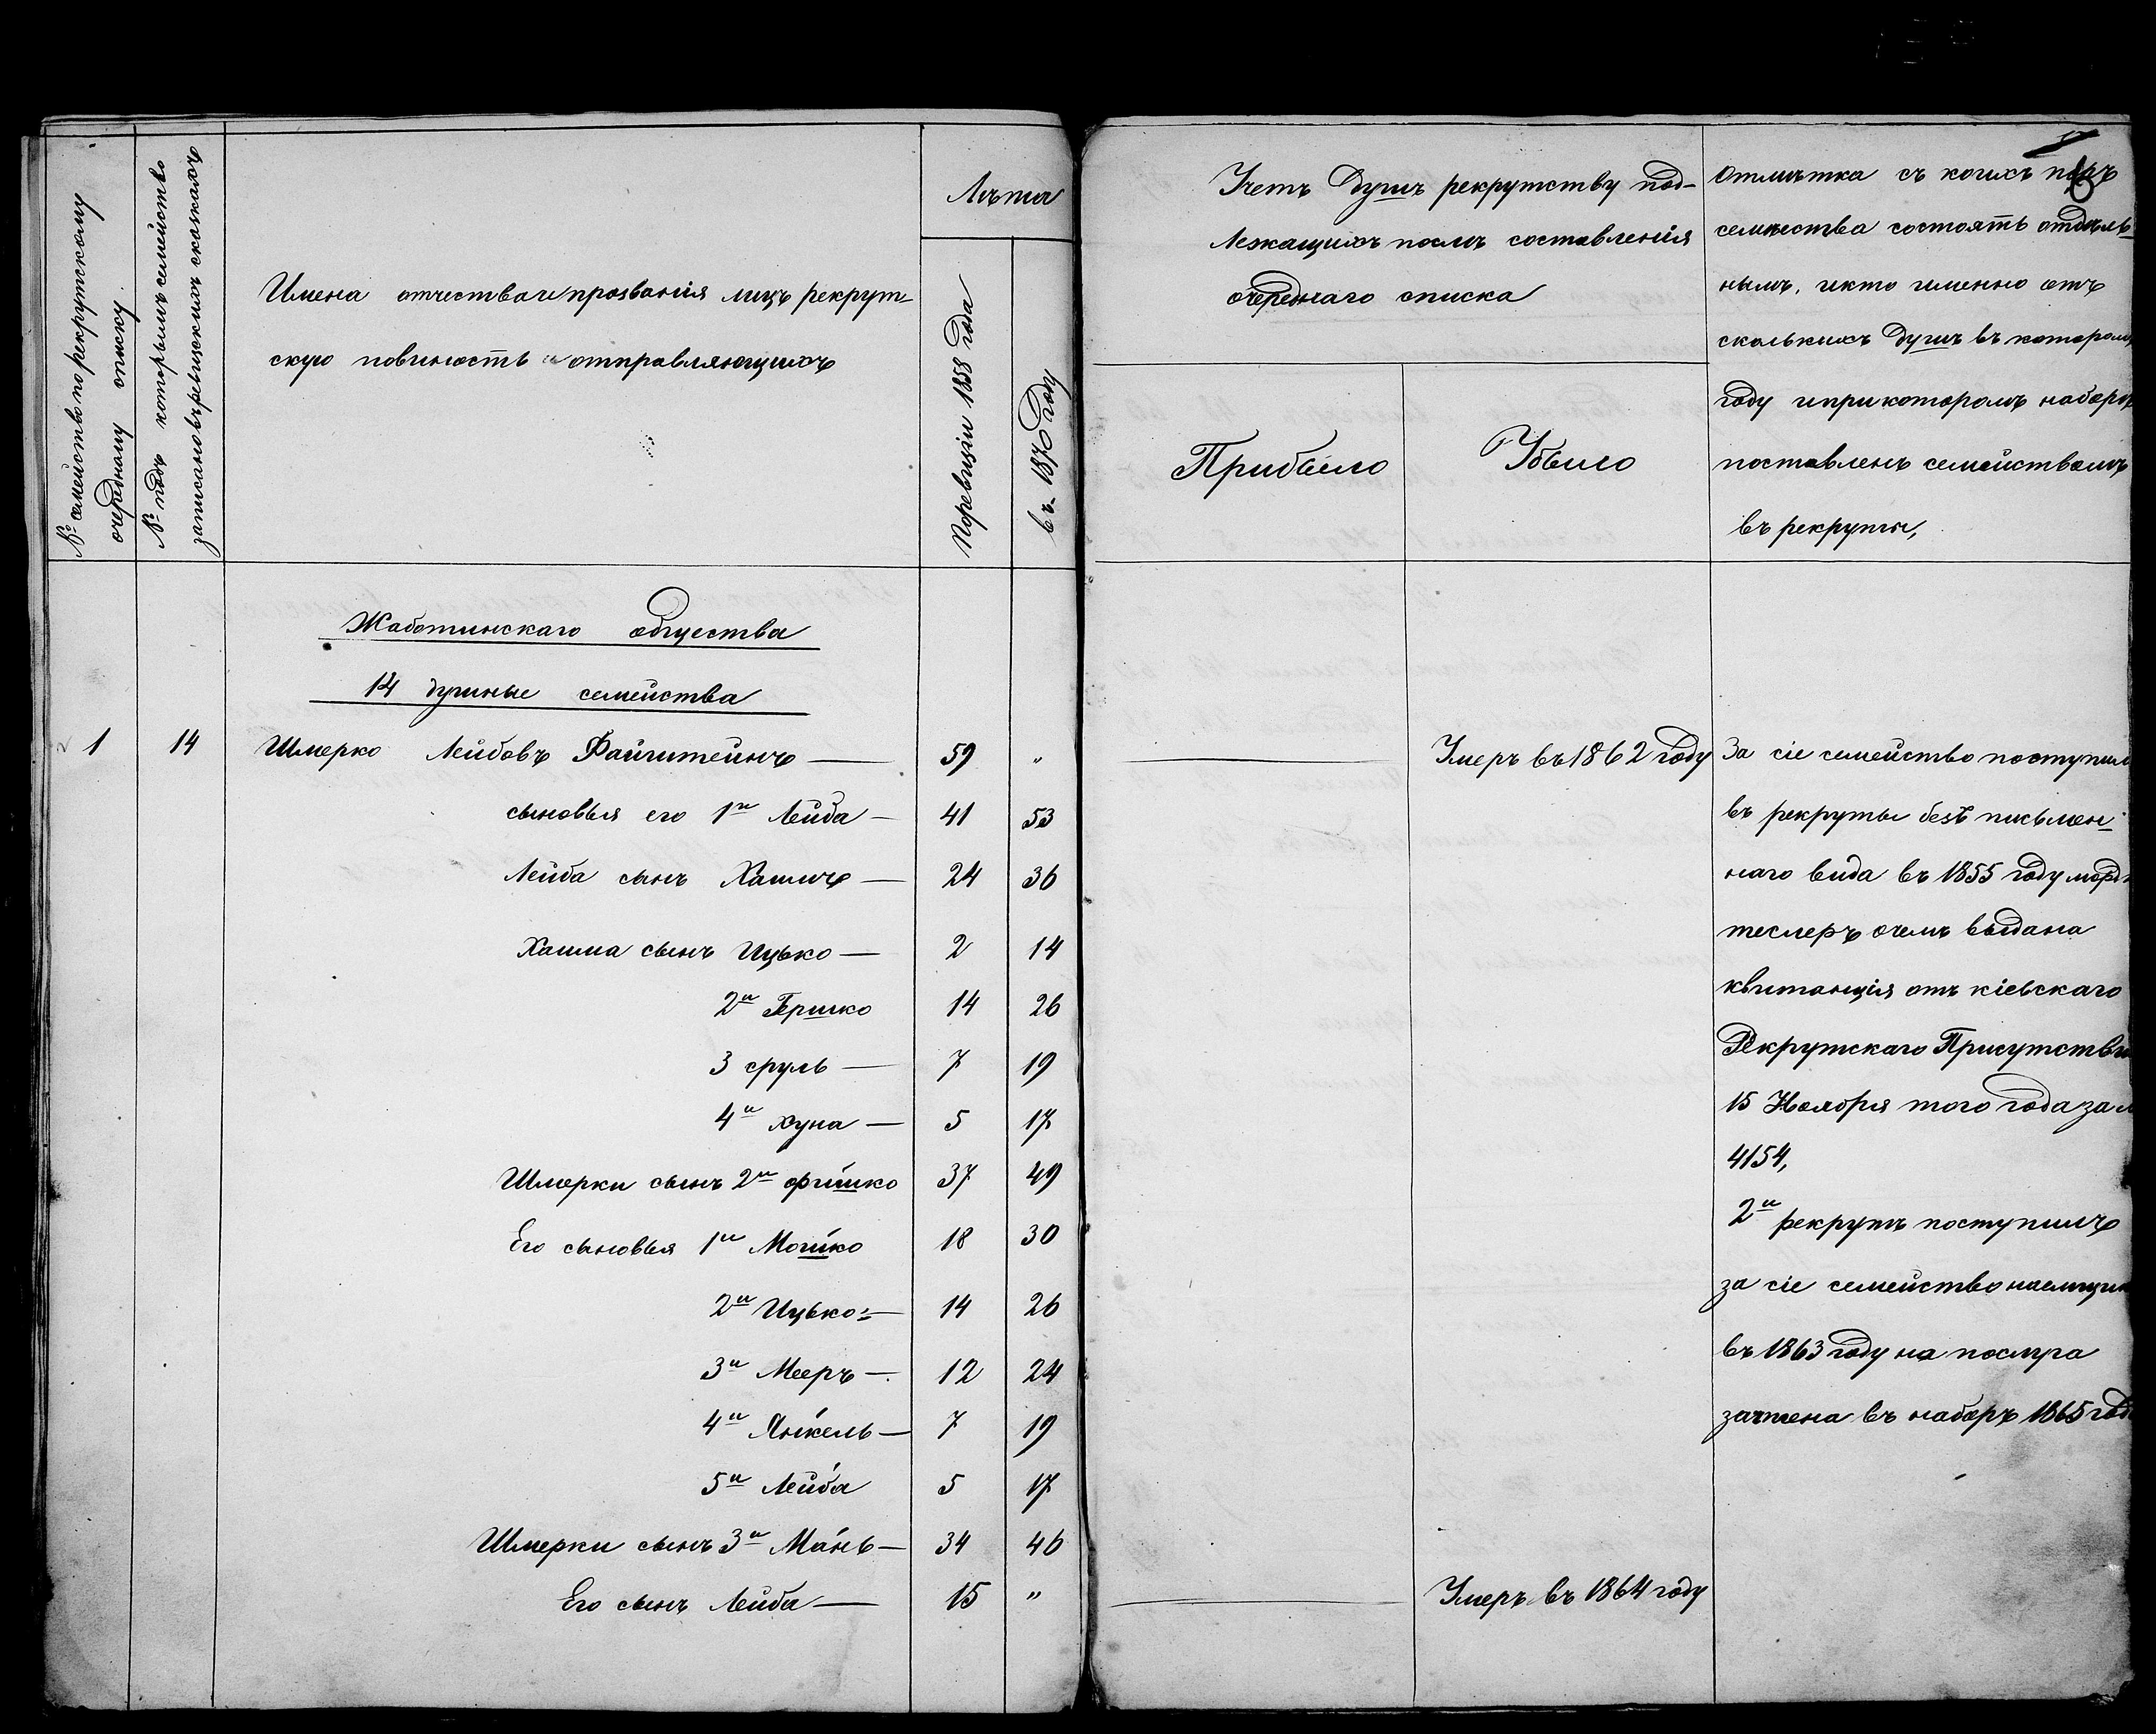 № семейства по рекрутскому
очередному списку.
№ подъ которымъ семейство
записано въ ревизскихъ сказкахъ
Имена отчества и прозванія лицъ рекрут-
скую повиность отправляющихъ
Лѣта
По ревизіи 1858 года
въ 1870 году
Жаботинскаго общества
14 душные семейства
1 14 Шмерко Лейбовъ Файнштейнъ — 59 "
сыновья его 1й Лейба — 41 53
Лейба сынъ Хаимъ — 24 36
Хаима сынъ Ицько — 2 14
2й Гершко 14 26
3 сруль — 7 19
4й хуна — 5 17
Шмерки сынъ 2й фишко 37 49
Его сыновья 1й Мошко 18 30
2й Ицько — 14 26
3й Мееръ — 12 24
4й Янкель — 7 19
5й Лейба 5 17
Шмерки сынъ 3й Мань — 34 46
Его сынъ Лейба — 15 "
Учетъ Душъ рекрутству под-
лежащихъ послѣ составленія
очереднаго списка
Прибыло
Убыло
Умеръ въ 1862 году
Умеръ въ 1864 году
8
Отмѣтка съ коихъ поръ
семѣства состоятъ отдѣль-
нымъ, икто именно отъ
сколькихъ Душъ въ котором
году ипри которомъ наборѣ
поставленъ семействомъ
въ рекруты,
За сіе семейство поступил
въ рекруты безъ писмен-
наго вида въ 1855 году
теслеръ очемъ выдана
квитанція отъ кіевскаго
Рекрутскаго Присутстви
15 Ноября того года за
4154,
2й рекрутъ поступилъ
за сіе семейство наемщик
въ 1863 году на
зачтена въ наборъ 1865 год